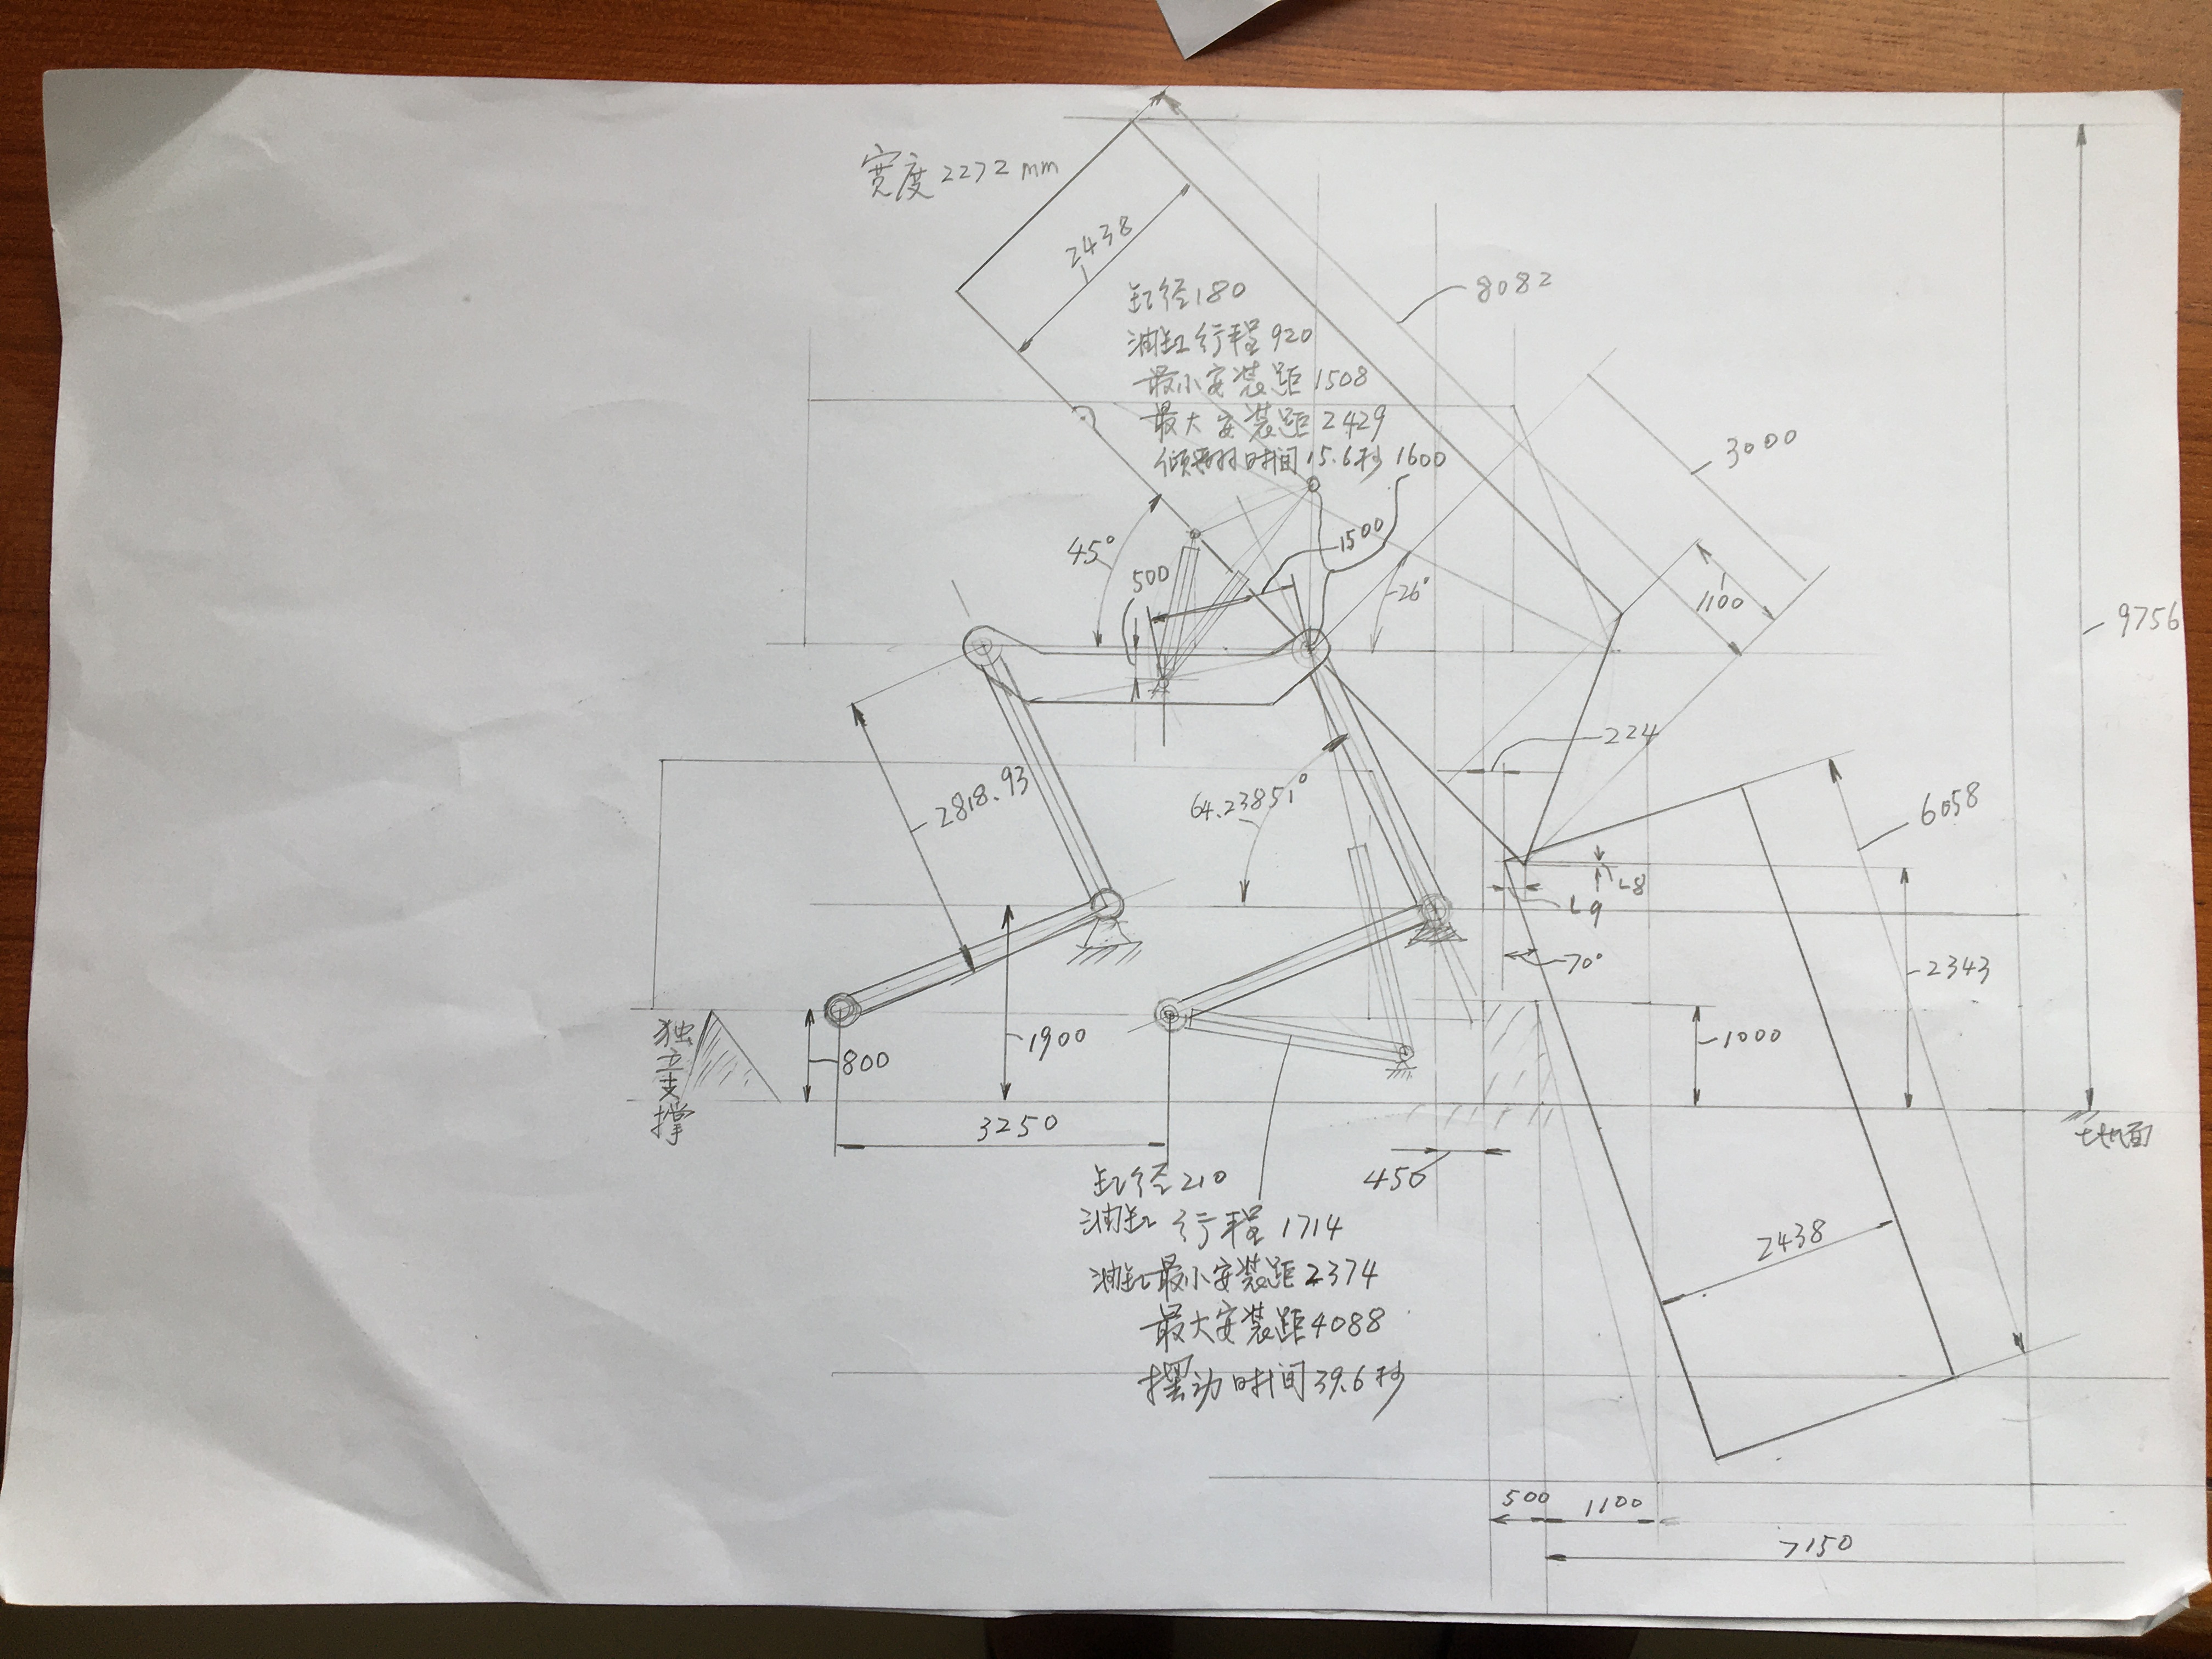 宽度2272mm
2438
8082
缸径180
油缸行程920
最小安装距1508
最大安装距2429
倾翻时间15.6秒
1600
3000
1500
45°
500
26°
1100
9756
224
2818.93
64.23851°
6058
L8
L9
70°
2343
独立支撑
800
1900
1000
3250
地面
450
缸径210
油缸行程1714
油缸最小安装距2374
最大安装距4088
摆动时间39.6秒
2438
500
1100
7150